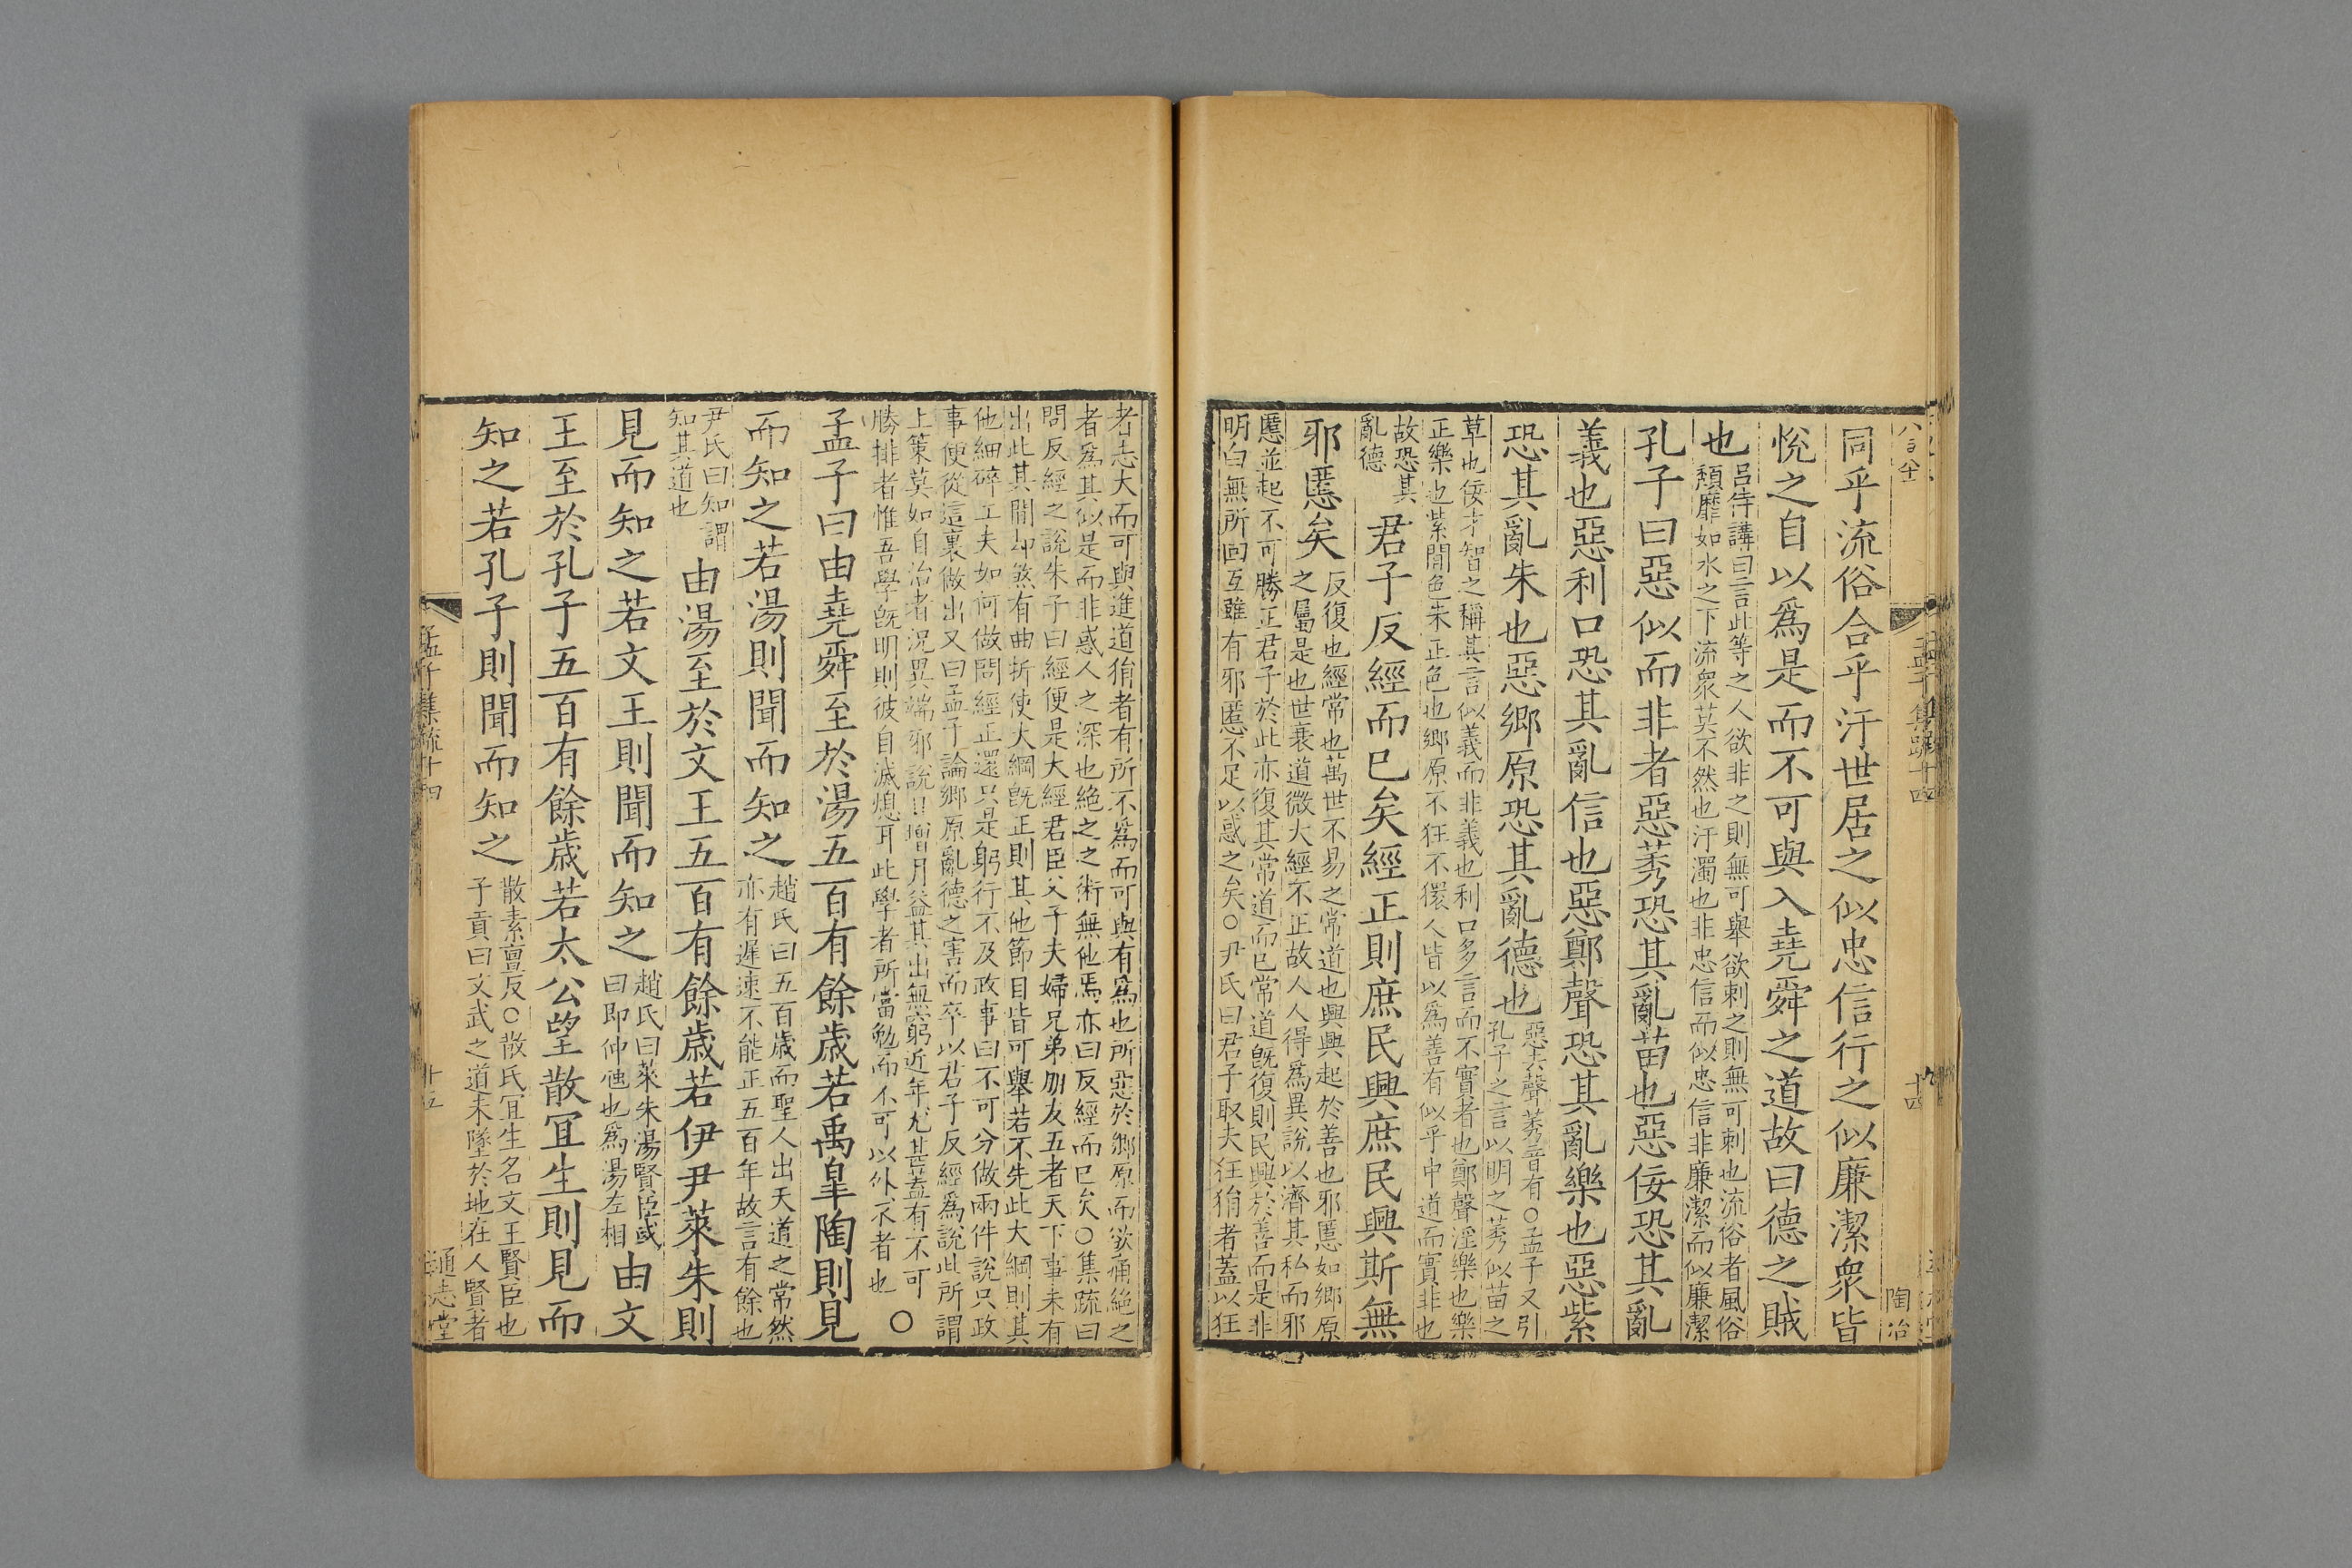 同乎流俗合乎汙世居之似忠信行之似廉潔衆皆
悅之自以爲是而不可與入堯舜之道故曰德之賊
也
呂侍講曰言此等之人欲非之則無可舉欲刺之則無可刺也流俗者風俗
頹靡如水之下流衆莫不然也汙濁也非忠信而似忠信非廉潔而似廉潔
孔子曰惡似而非者惡莠恐其亂苗也惡佞恐其亂
義也惡利口恐其亂信也惡鄭聲恐其亂樂也惡紫
恐其亂朱也惡鄉原恐其亂德也
惡去聲莠音有○孟子又引
孔子之言以明之莠似苗之
草也佞才智之稱其言似義而非義也利口多言而不實者也鄭聲淫樂也樂
正樂也紫間色朱正色也鄉原不狂不獧人皆以爲善有似乎中道而實非也
故恐其
亂德
君子反經而已矣經正則庶民興庶民興斯無
邪慝矣
反復也經常也萬世不易之常道也興興起於善也邪慝如鄉原
之屬是也世衰道微大經不正故人人得爲異說以濟其私而邪
慝並起不可勝正君子於此亦復其常道而已常道旣復則民興於善而是非
明白無所回互雖有邪慝不足以惑之矣○尹氏曰君子取夫狂狷者蓋以狂
孟子集疏十四
十四
陶冶
者志大而可與進道狷者有所不爲而可與有爲也所惡於鄉原而欲痛絕之
者爲其似是而非惑人之深也絕之之術無他焉亦曰反經而已矣○集疏曰
問反經之說朱子曰經便是大經君臣父子夫婦兄弟朋友五者天下事未有
出此其間却煞有曲折使大綱旣正則其他節目皆可舉若不先此大綱則其
他細碎工夫如何做問經正還只是躬行不及政事曰不可分做兩件說只政
事便從這裏做出又曰孟子論鄉原亂德之害而卒以君子反經爲說此所謂
上策莫如自治者況異端邪說日增月益其出無窮近年尤甚蓋有不可
勝排者惟吾學旣明則彼自滅熄耳此學者所當勉而不可以外求者也
○
孟子曰由堯舜至於湯五百有餘歲若禹皐陶則見
而知之若湯則聞而知之
趙氏曰五百歲而聖人出天道之常然
亦有遲速不能正五百年故言有餘也
尹氏曰知謂
知其道也
由湯至於文王五百有餘歲若伊尹萊朱則
見而知之若文王則聞而知之
趙氏曰萊朱湯賢臣或
曰即仲虺也爲湯左相
由文
王至於孔子五百有餘歲若太公望散宜生則見而
知之若孔子則聞而知之
散素亶反○散氏宜生名文王賢臣也
子貢曰文武之道未墜於地在人賢者
孟子集疏十四
十五
通志堂